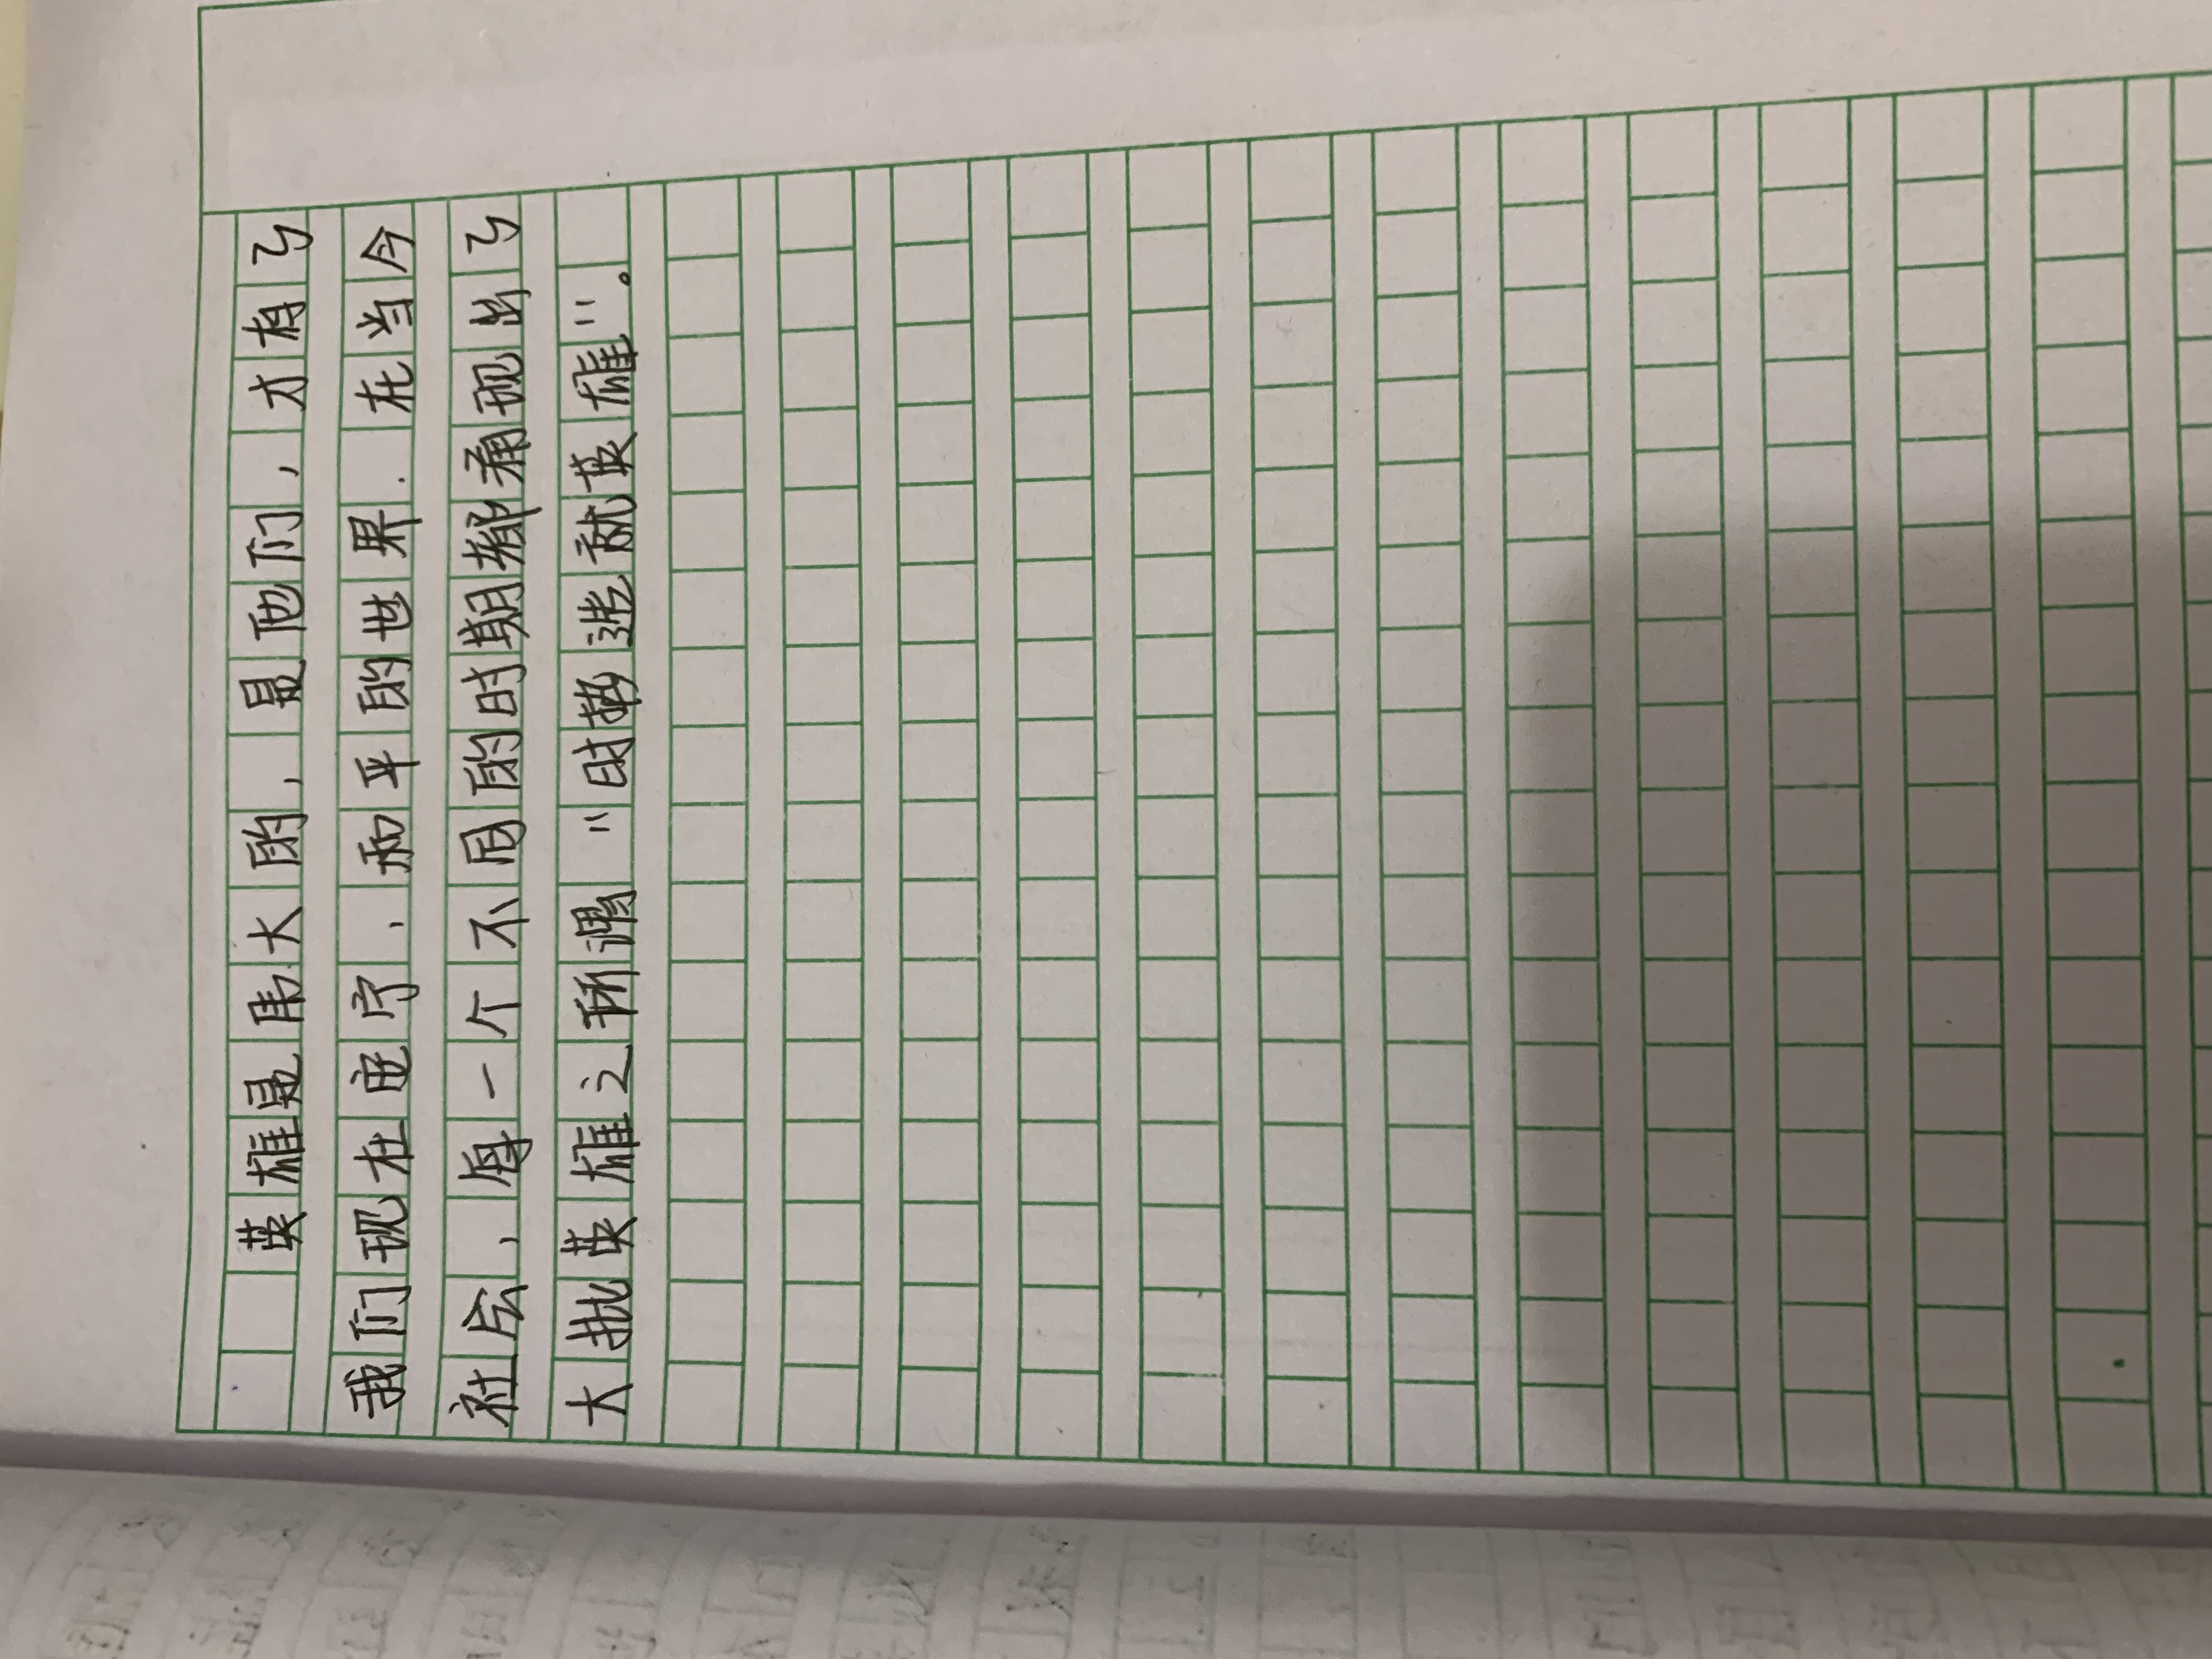 英雄是伟大的，是他们，才有了
我们现在安宁、和平的世界.在当今
社会，每一个不同的时期都涌现出了
大批英雄之所谓“时势造就英雄”。